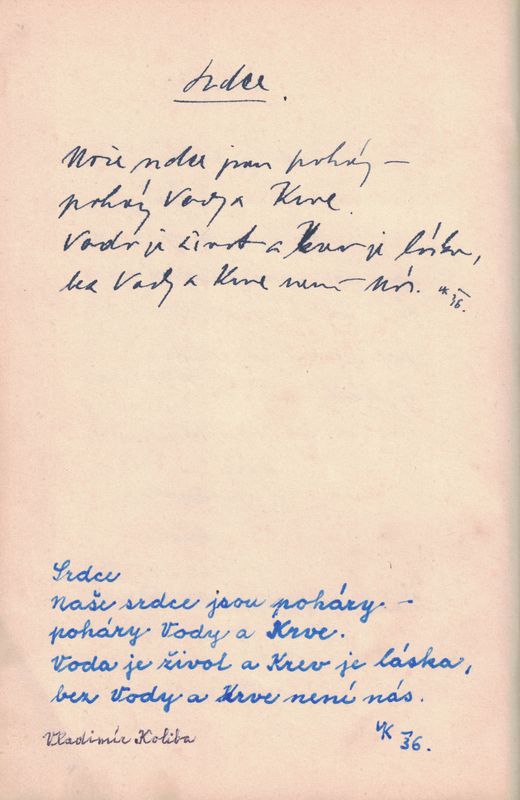 Srdce.
Naše srdce jsou poháry –
poháry Vody a Krve.
Voda je život a Krev je láska,
bez Vody a Krve není nás. VK 36.
Srdce
Naše srdce jsou poháry –
poháry Vody a Krve.
Voda je život a Krev je láska,
bez Vody a Krve není nás.
VK 36.
Vladimír Koliba